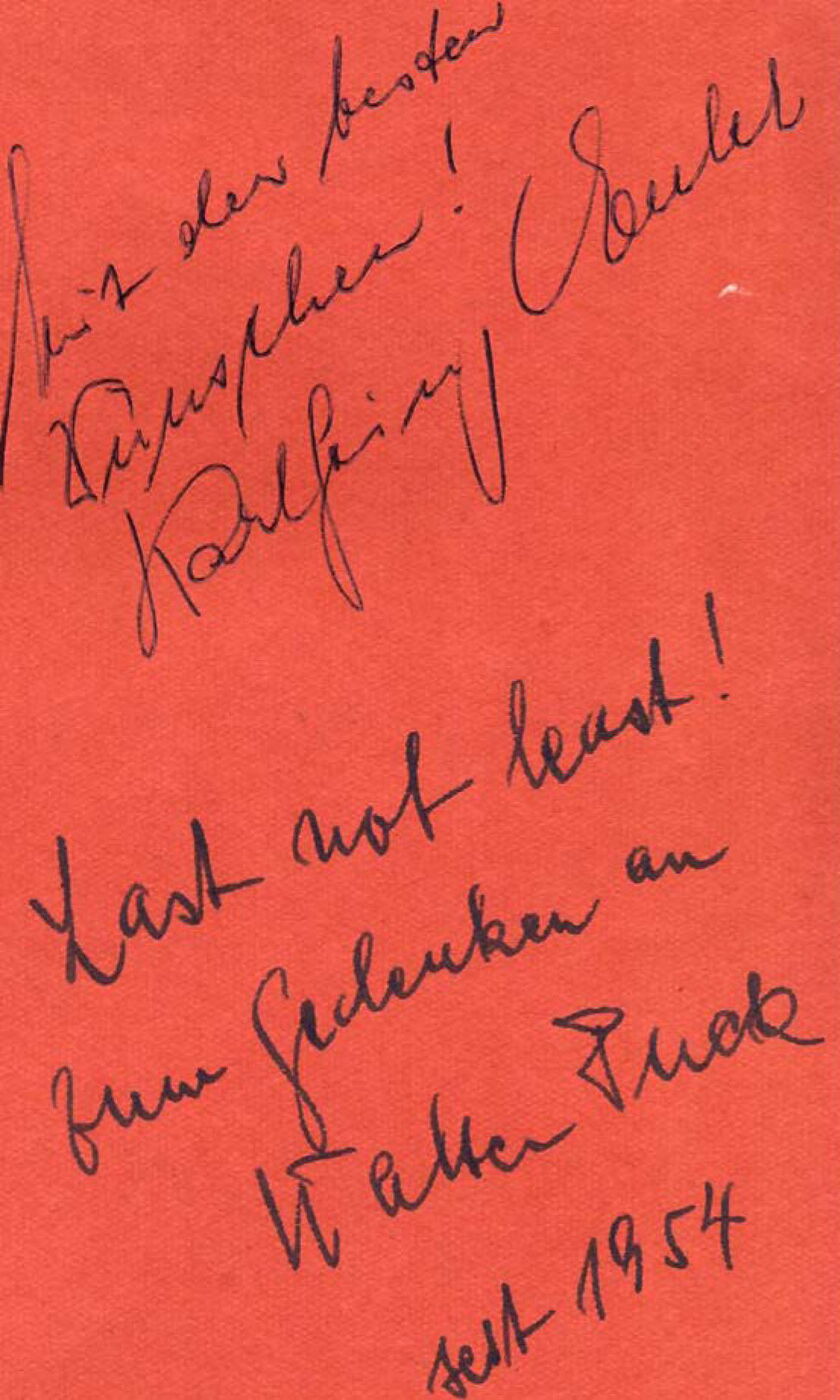 Mit den besten
Wünschen!
Karlheinz
Last not least!
zum Gedenken an
Walter Puck
seit 1954